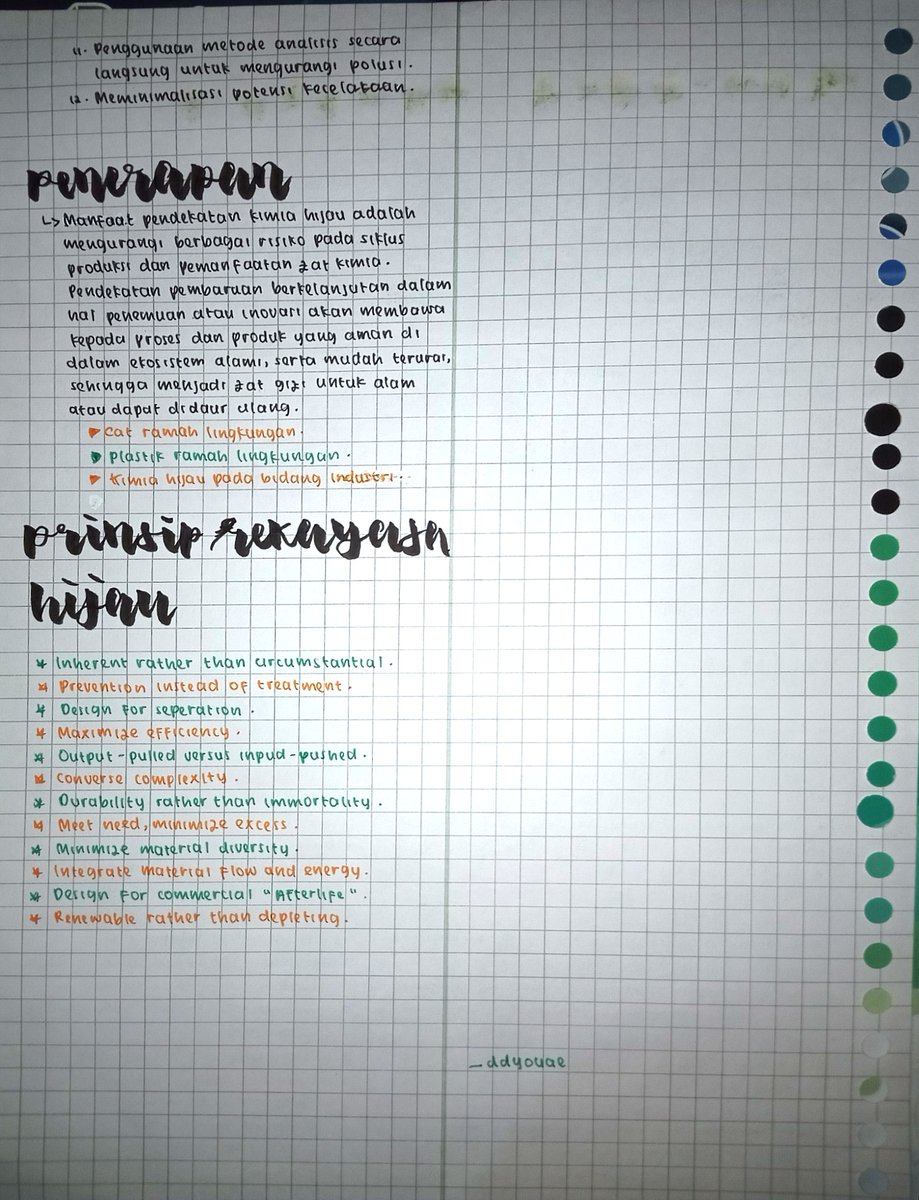 11. Penggunaan metode analisis secara
langsung untuk mengurangi polusi.
12. Meminimalisasi potensi kecelakaan.
penerapan
↳ Manfaat pendekatan kimia hijau adalah
mengurangi berbagai risiko pada siklus
produksi dan pemanfaatan zat kimia.
Pendekatan pembaruan berkelanjutan dalam
hal penemuan atau inovasi akan membawa
kepada proses dan produk yang aman di
dalam ekosistem alami, serta mudah terurai,
sehingga menjadi zat gizi untuk alam
atau dapat didaur ulang.
▸ Cat ramah lingkungan.
▸ Plastik ramah lingkungan.
▸ Kimia hijau pada bidang industri.
prinsip rekayasa
hijau
* Inherent rather than circumstantial.
* Prevention instead of treatment.
* Design for seperation.
* Maximize efficiency.
* Output-pulled versus inpud-pushed.
* Converse complexity.
* Durability rather than immortality.
* Meet need, minimize excess.
* Minimize material diversity.
* Integrate material flow and energy.
* Design for commercial "Afterlife".
* Renewable rather than depleting.
_ddyouae